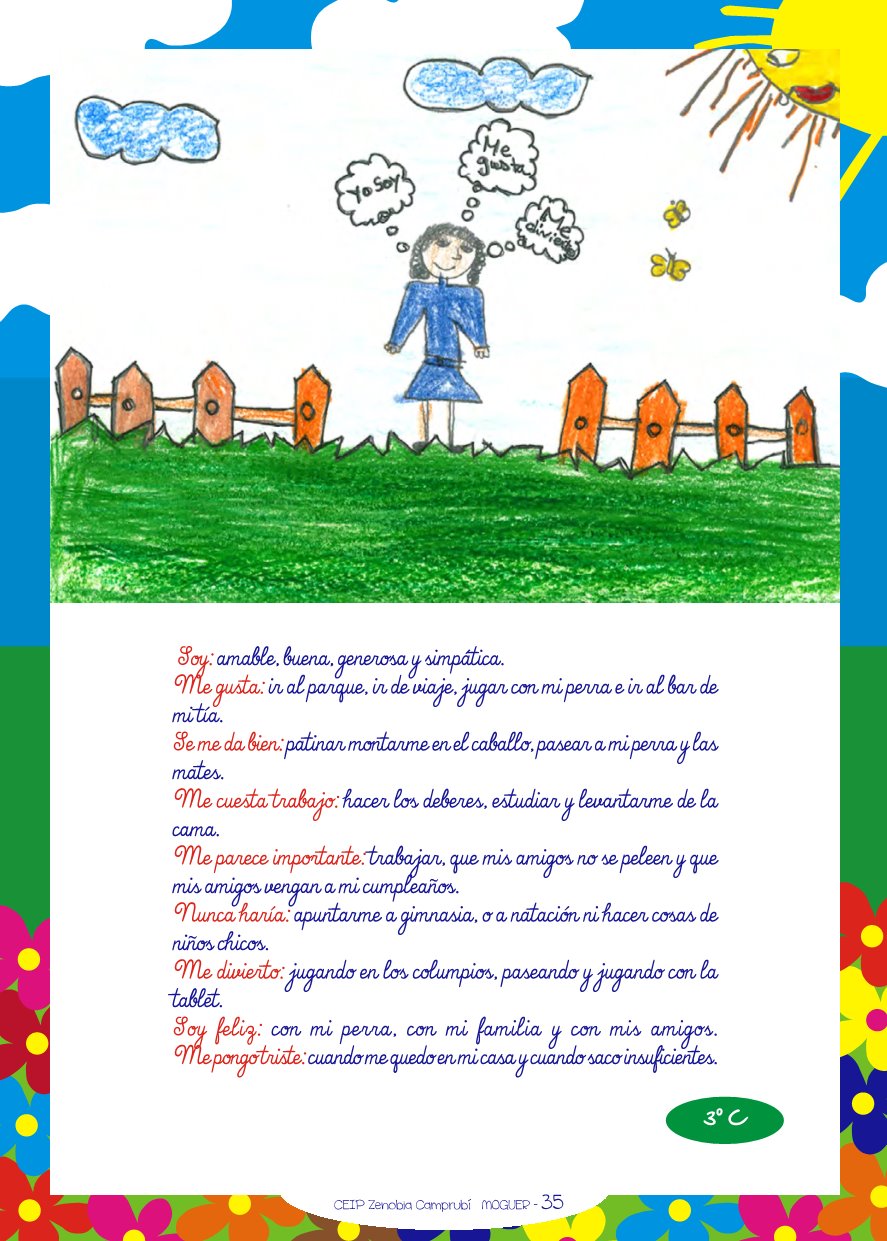 Yo soy
Me
gusta
Me
divierto
Soy: amable, buena, generosa y simpática.
Me gusta: ir al parque, ir de viaje, jugar con mi perra e ir al bar de
mi tía.
Se me da bien: patinar montarme en el caballo, pasear a mi perra y las
mates.
Me cuesta trabajo: hacer los deberes, estudiar y levantarme de la
cama.
Me parece importante: trabajar, que mis amigos no se peleen y que
mis amigos vengan a mi cumpleaños.
Nunca haría: apuntarme a gimnasia, o a natación ni hacer cosas de
niños chicos.
Me divierto: jugando en los columpios, paseando y jugando con la
tablet.
Soy feliz: con mi perra, con mi familia y con mis amigos.
Me pongo triste: cuando me quedo en mi casa y cuando saco insuficientes.
3º C
CEIP Zenobia Camprubí MOGUER - 35